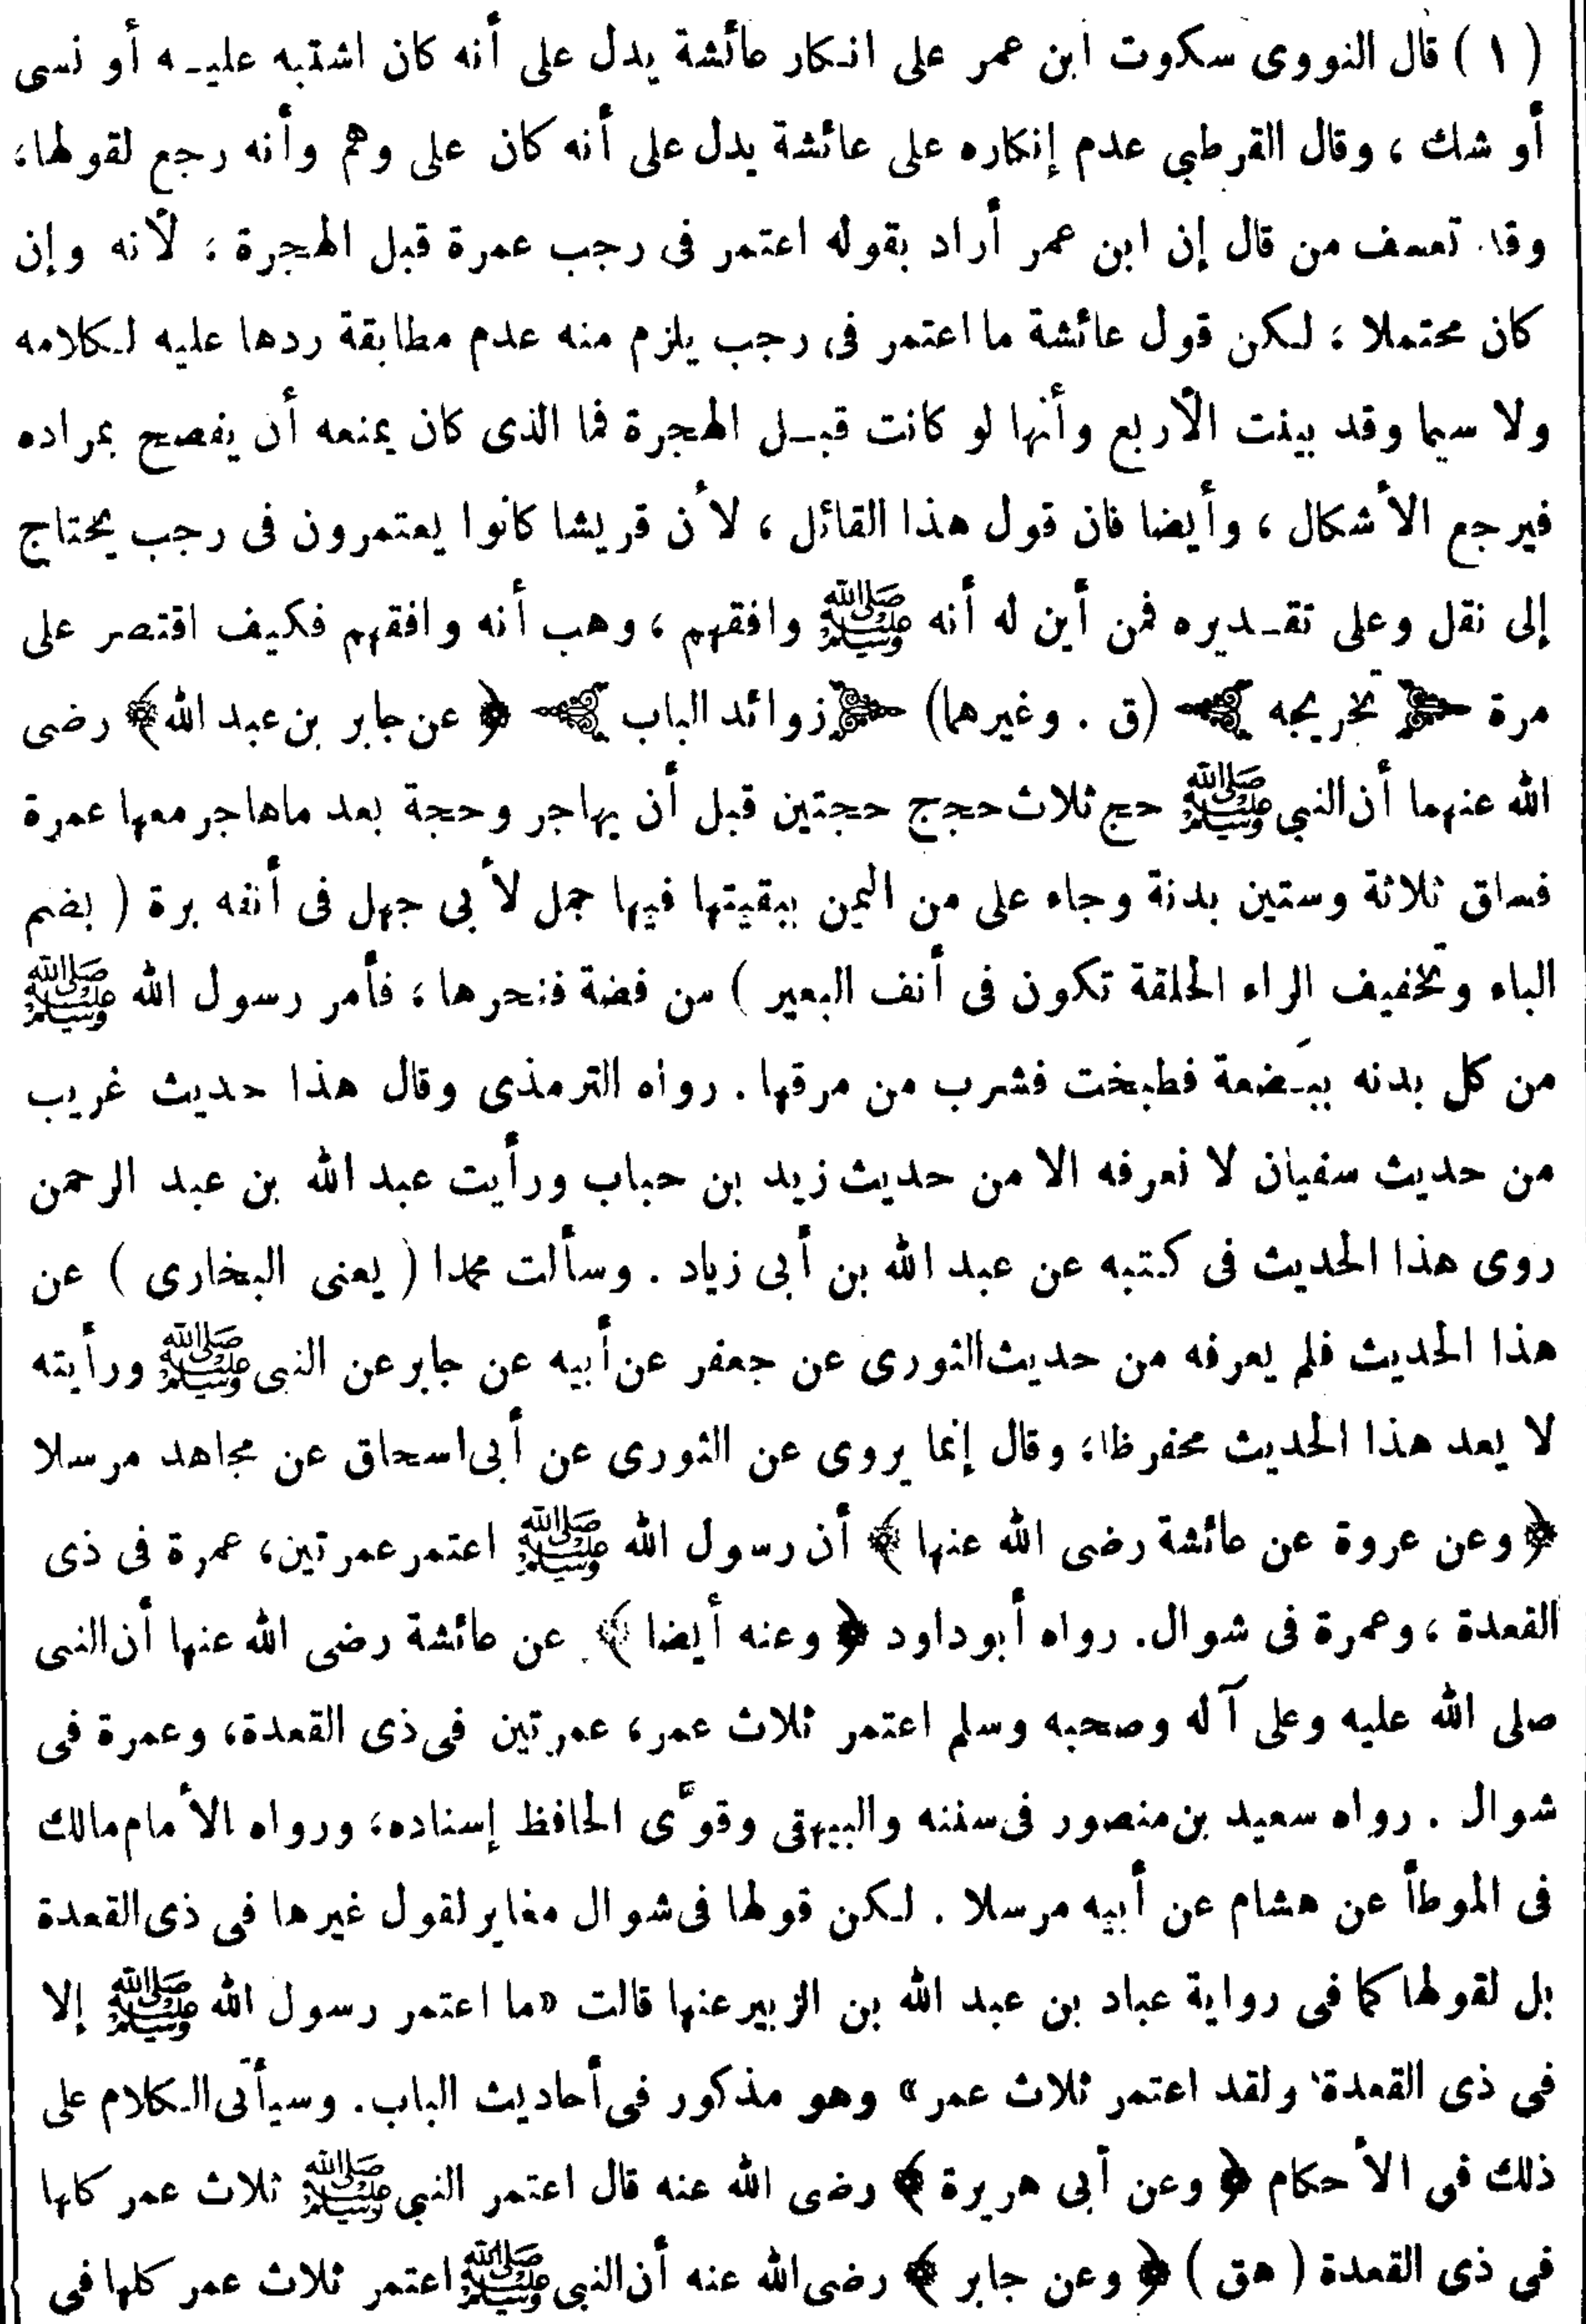 ( ١ ) قال النووى سكوت ابن عمر على انكار عائشة يدل على أنه كان اشتبه عليه أو نسى
أو شك ، وقال القرطبي عدم إنكاره على عائشة يدل على أنه كان على وهم وأنه رجع لقولها،
وقد تعسف من قال إن ابن عمر أراد بقوله اعتمر فى رجب عمرة قبل الهجرة ؛ لأنه وإن
كان محتملا ؛ لكن قول عائشة ما اعتمر فى رجب يلزم منه عدم مطابقة ردها عليه لكلامه
ولا سيما وقد بينت الأربع وأنها لو كانت قبل الهجرة فما الذى كان يمنعه أن يفصح بمراده
فيرجع الأشكال ، وأيضا فان قول هذا القائل ، لأن قريشا كانوا يعتمرون فى رجب يحتاج
إلى نقل وعلى تقديره فمن أين له أنه ﷺ وافقهم ، وهب أنه وافقهم فكيف اقتصر على
مرة تخريجه (ق . وغيرهما) زوائد الباب ﴿ عن جابر بن عبد الله ﴾ رضى
الله عنهما أن النبي ﷺ حج ثلاث حجج حجتين قبل أن يهاجر وحجة بعد ماهاجر معها عمرة
فساق ثلاثة وستين بدنة وجاء على من اليمن ببقيتها فيها جمل لأبى جهل فى أنفه برة ( بضم
الباء وتخفيف الراء الحلقة تكون فى أنف البعير ) من فضة فنحرها ، فأمر رسول الله ﷺ
من كل بدنه ببَضعة فطبخت فشرب من مرقها . رواه الترمذى وقال هذا حديث غريب
من حديث سفيان لا نعرفه الا من حديث زيد بن حباب ورأيت عبد الله بن عبد الرحمن
روى هذا الحديث فى كتبه عن عبد الله بن أبى زياد . وسألت محمدا ( يعنى البخارى ) عن
هذا الحديث فلم يعرفه من حديث الثورى عن جعفر عن أبيه عن جابر عن النبى ﷺ ورأيته
لا يعد هذا الحديث محفوظا؛ وقال إنما يروى عن الثورى عن أبى اسحاق عن مجاهد مرسلا
﴿ وعن عروة عن عائشة رضى الله عنها ﴾ أن رسول الله ﷺ اعتمر عمرتين، عمرة فى ذى
القعدة ، وعمرة فى شوال. رواه أبوداود ﴿ وعنه أيضا ﴾ عن عائشة رضى الله عنها أن النبى
صلى الله عليه وعلى آله وصحبه وسلم اعتمر ثلاث عمر، عمرتين فى ذى القعدة، وعمرة فى
شوال . رواه سعيد بن منصور فى سننه والبيهقى وقوَّى الحافظ إسناده؛ ورواه الأمام مالك
فى الموطأ عن هشام عن أبيه مرسلا . لكن قولها فى شوال مغاير لقول غيرها فى ذى القعدة
بل لقولها كما فى رواية عباد بن عبد الله بن الزبير عنها قالت «ما اعتمر رسول الله ﷺ إلا
فى ذى القعدة ولقد اعتمر ثلاث عمر» وهو مذكور فى أحاديث الباب. وسيأتى الكلام على
ذلك فى الأحكام ﴿ وعن أبى هريرة ﴾ رضى الله عنه قال اعتمر النبى ﷺ ثلاث عمر كلها
فى ذى القعدة ( هق ) ﴿ وعن جابر ﴾ رضى الله عنه أن النبى ﷺ اعتمر ثلاث عمر كلها فى